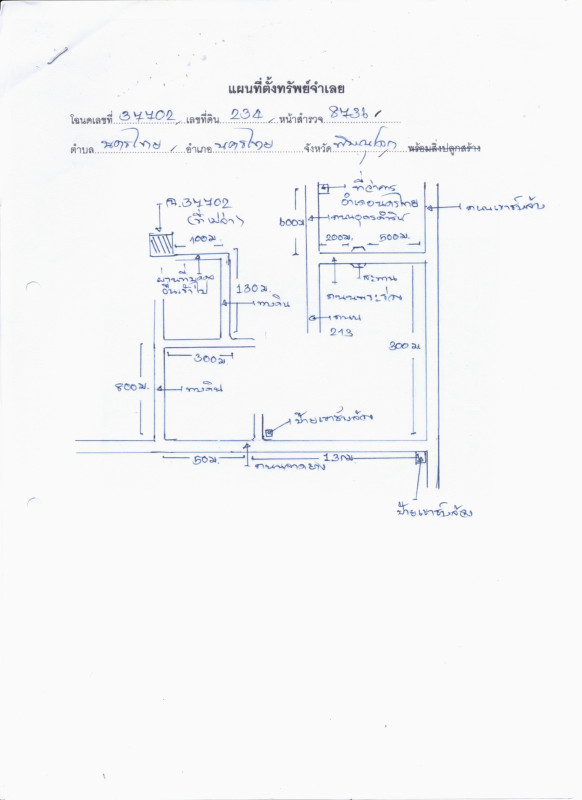 แผนที่ตั้งทรัพย์จำเลย
โฉนดเลขที่ 37702 เลขที่ดิน 234 หน้าสำรวจ 8736
ตำบล นครไทย อำเภอ นครไทย จังหวัด พิษณุโลก พร้อมสิ่งปลูกสร้าง
ฉ.37702
(ที่เปล่า)
100ม.
ที่ว่าการ
อำเภอนครไทย
600ม
200ม. 500ม.
ผ่านที่บุคคล
อื่นเข้าไป
130ม.
ทางดิน
สะพาน
ถนน
213
300ม
300ม.
800ม.
ทางดิน
ป้ายเขาช้างล้อง
50ม.
ถนนลาดยาง
1.3กม
ป้ายเขาช้างล้อง